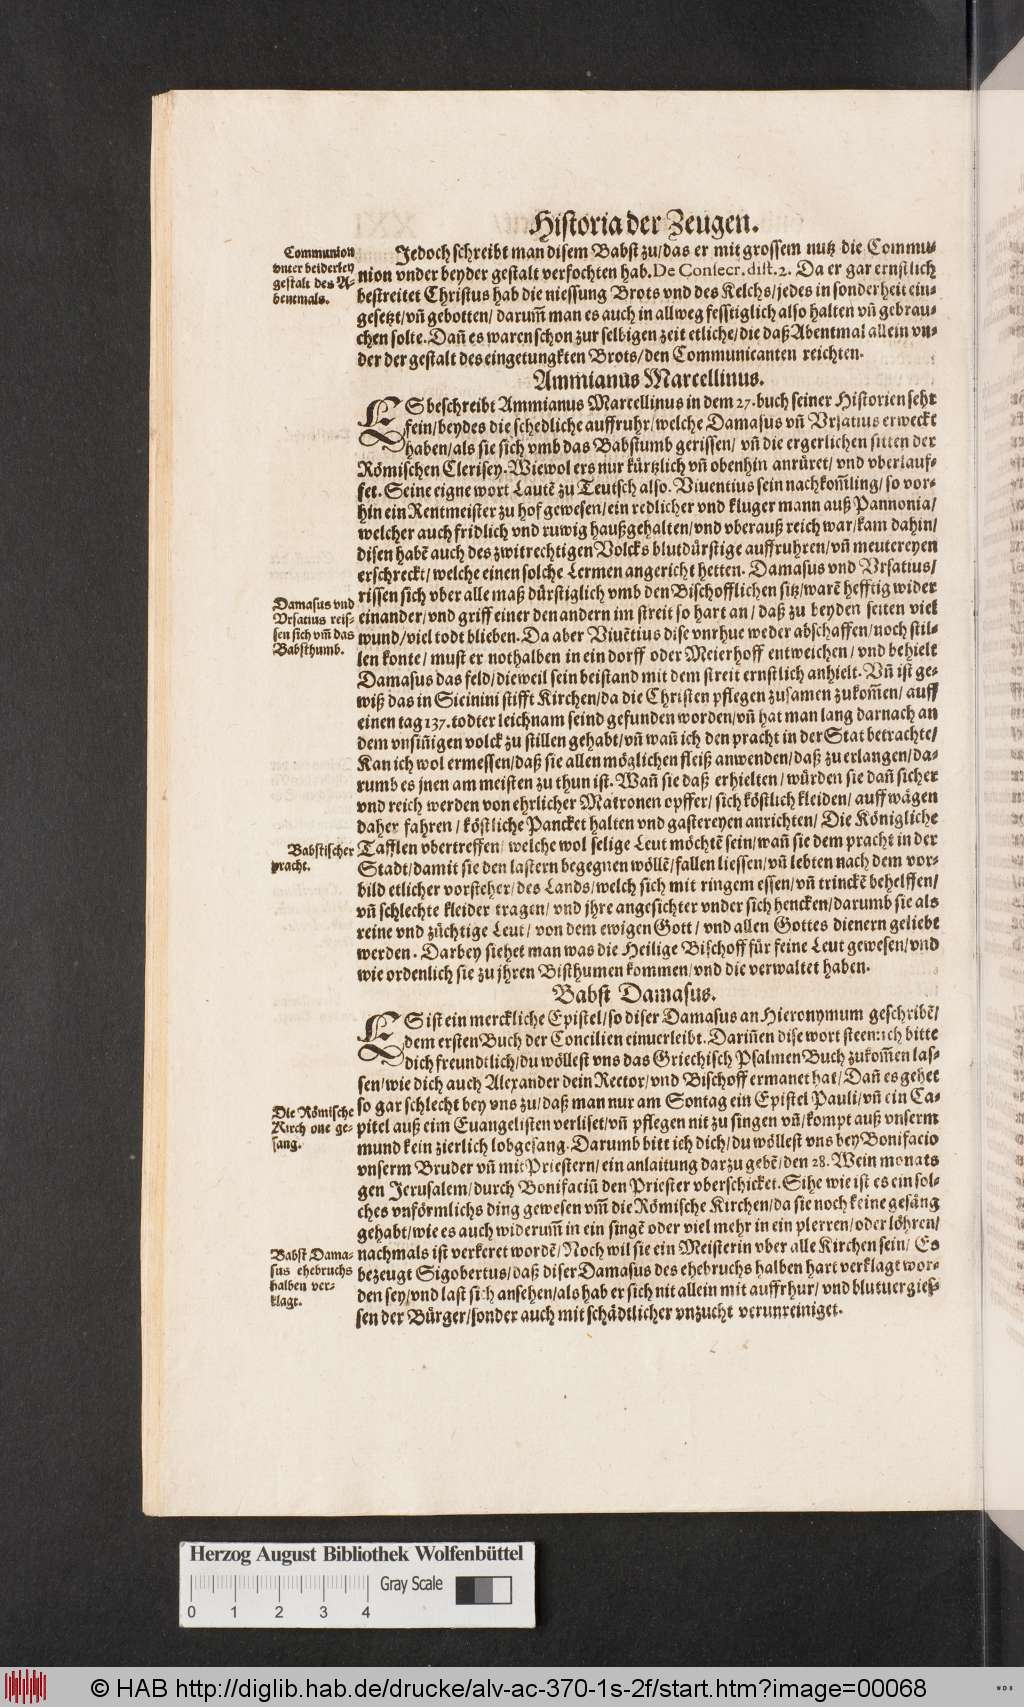 Historia der Zeugen.
Communion
vnter beiderley
gestalt des A-
bentmals.
Jedoch schreibt man disem Babst zu/das er mit grossem nutz die Commu-
nion vnder beyder gestalt verfochten hab. De Consecr. dist. 2. Da er gar ernstlich
bestreitet Christus hab die niessung Brots vnd des Kelchs/jedes in sonderheit ein-
gesetzt/vñ gebotten/ darum̃ man es auch in allweg fesstiglich also halten vñ gebrau-
chen solte. Dañ es waren schon zur selbigen zeit etliche/die daß Abentmal allein vn-
der der gestalt des eingetungkten Brots/den Communicanten reichten.
Ammianus Marcellinus.
ES beschreibt Ammianus Marcellinus in dem 27. buch seiner Historien seht
fein/beydes die schedliche auffruhr/welche Damasus vñ Vrsatius erweckt
haben/als sie sich vmb das Babstumb gerissen/ vñ die ergerlichen sitten der
Römischen Clerisey. Wiewol ers nur kürtzlich vñ obenhin anrüret/ vnd vberlauf-
fet. Seine eigne wort Lautẽ zu Teutsch also. Viuentius sein nachkom̃ling/ so vor-
hin ein Rentmeister zu hof gewesen/ein redlicher vnd kluger mann auß Pannonia/
welcher auch fridlich vnd ruwig haußgehalten/vnd vberauß reich war/kam dahin/
disen habẽ auch des zwitrechtigen Volcks blutdürstige auffruhren/vñ meutereyen
erschreckt/welche einen solche Lermen angericht hetten. Damasus vnd Vrsatius/
Damasus vnd
Vrsatius reis-
sen sich vm̃ das
Babsthumb.
rissen sich vber alle maß dürstiglich vmb den Bischofflichen sitz/warẽ hefftig wider
einander/vnd griff einer den andern im streit so hart an/ daß zu beyden seiten viel
wund/viel todt blieben. Da aber Viuẽtius dise vnrhue weder abschaffen/noch stil-
len konte/ must er nothalben in ein dorff oder Meierhoff entweichen/ vnd behielt
Damasus das feld/dieweil sein beistand mit dem streit ernstlich anhielt. Vñ ist ge-
wiß das in Sicinini stifft Kirchen/da die Christen pflegen zusamen zukom̃en/ auff
einen tag 137. todter leichnam seind gefunden worden/vñ hat man lang darnach an
dem vnsiñigen volck zu stillen gehabt/vñ wañ ich den pracht in der Stat betrachte/
Kan ich wol ermessen/daß sie allen möglichen fleiß anwenden/daß zu erlangen/da-
rumb es jnen am meisten zu thun ist. Wañ sie daß erhielten/ würden sie dañ sicher
vnd reich werden von ehrlicher Matronen opffer/ sich köstlich kleiden/ auff wägen
daher fahren/ köstliche Pancket halten vnd gastereyen anrichten/ Die Königliche
Babstischer
pracht.
Tafflen vbertreffen/ welche wol selige Leut möchtẽ sein/wañ sie dem pracht in der
Stadt/damit sie den lastern begegnen wöllẽ/fallen liessen/vñ lebten nach dem vor-
bild etlicher vorsteher/des Lands/welch sich mit ringem essen/vñ trinckẽ behelffen/
vñ schlechte kleider tragen/ vnd jhre angesichter vnder sich hencken/darumb sie als
reine vnd züchtige Leut/ von dem ewigen Gott/ vnd allen Gottes dienern geliebt
werden. Darbey siehet man was die Heilige Bischoff für feine Leut gewesen/vnd
wie ordenlich sie zu jhren Bisthumen kommen/vnd die verwaltet haben.
Babst Damasus.
ES ist ein merckliche Epistel/so diser Damasus an Hieronymum geschribẽ/
dem ersten Buch der Concilien einuerleibt. Dariñen dise wort steen: ich bitte
dich freundtlich/du wöllest vns das Griechisch Psalmen Buch zukom̃en las-
sen/wie dich auch Alexander dein Rector/vnd Bischoff ermanet hat/Dañ es gehet
Die Römische
Kirch one ge-
sang.
so gar schlecht bey vns zu/daß man nur am Sontag ein Epistel Pauli/vñ ein Ca-
pitel auß eim Euangelisten verliset/vñ pflegen nit zu singen vñ/kompt auß vnserm
mund kein zierlich lobgesang. Darumb bitt ich dich/du wöllest vns bey Bonifacio
vnserm Bruder vñ mit Priestern/ein anlaitung darzu gebẽ/den 28. Wein monats
gen Jerusalem/durch Bonifaciũ den Priester vberschicket. Sihe wie ist es ein sol-
ches vnförmlichs ding gewesen vm̃ die Römische Kirchen/da sie noch keine gesäng
gehabt/wie es auch widerum̃ in ein singẽ oder viel mehr in ein plerren/oder löhren/
Babst Dama-
sus ehebruchs
halben ver-
klagt.
nachmals ist verkeret wordẽ/Noch wil sie ein Meisterin vber alle Kirchen sein/ Es
bezeugt Sigobertus/daß diser Damasus des ehebruchs halben hart verklagt wor-
den sey/vnd last sich ansehen/als hab er sich nit allein mit auffrhur/ vnd blutuergies-
sen der Bürger/sonder auch mit schädtlicher vnzucht verunreiniget.
Herzog August Bibliothek Wolfenbüttel
Gray Scale
0 1 2 3 4
© HAB http://diglib.hab.de/drucke/alv-ac-370-1s-2f/start.htm?image=00068